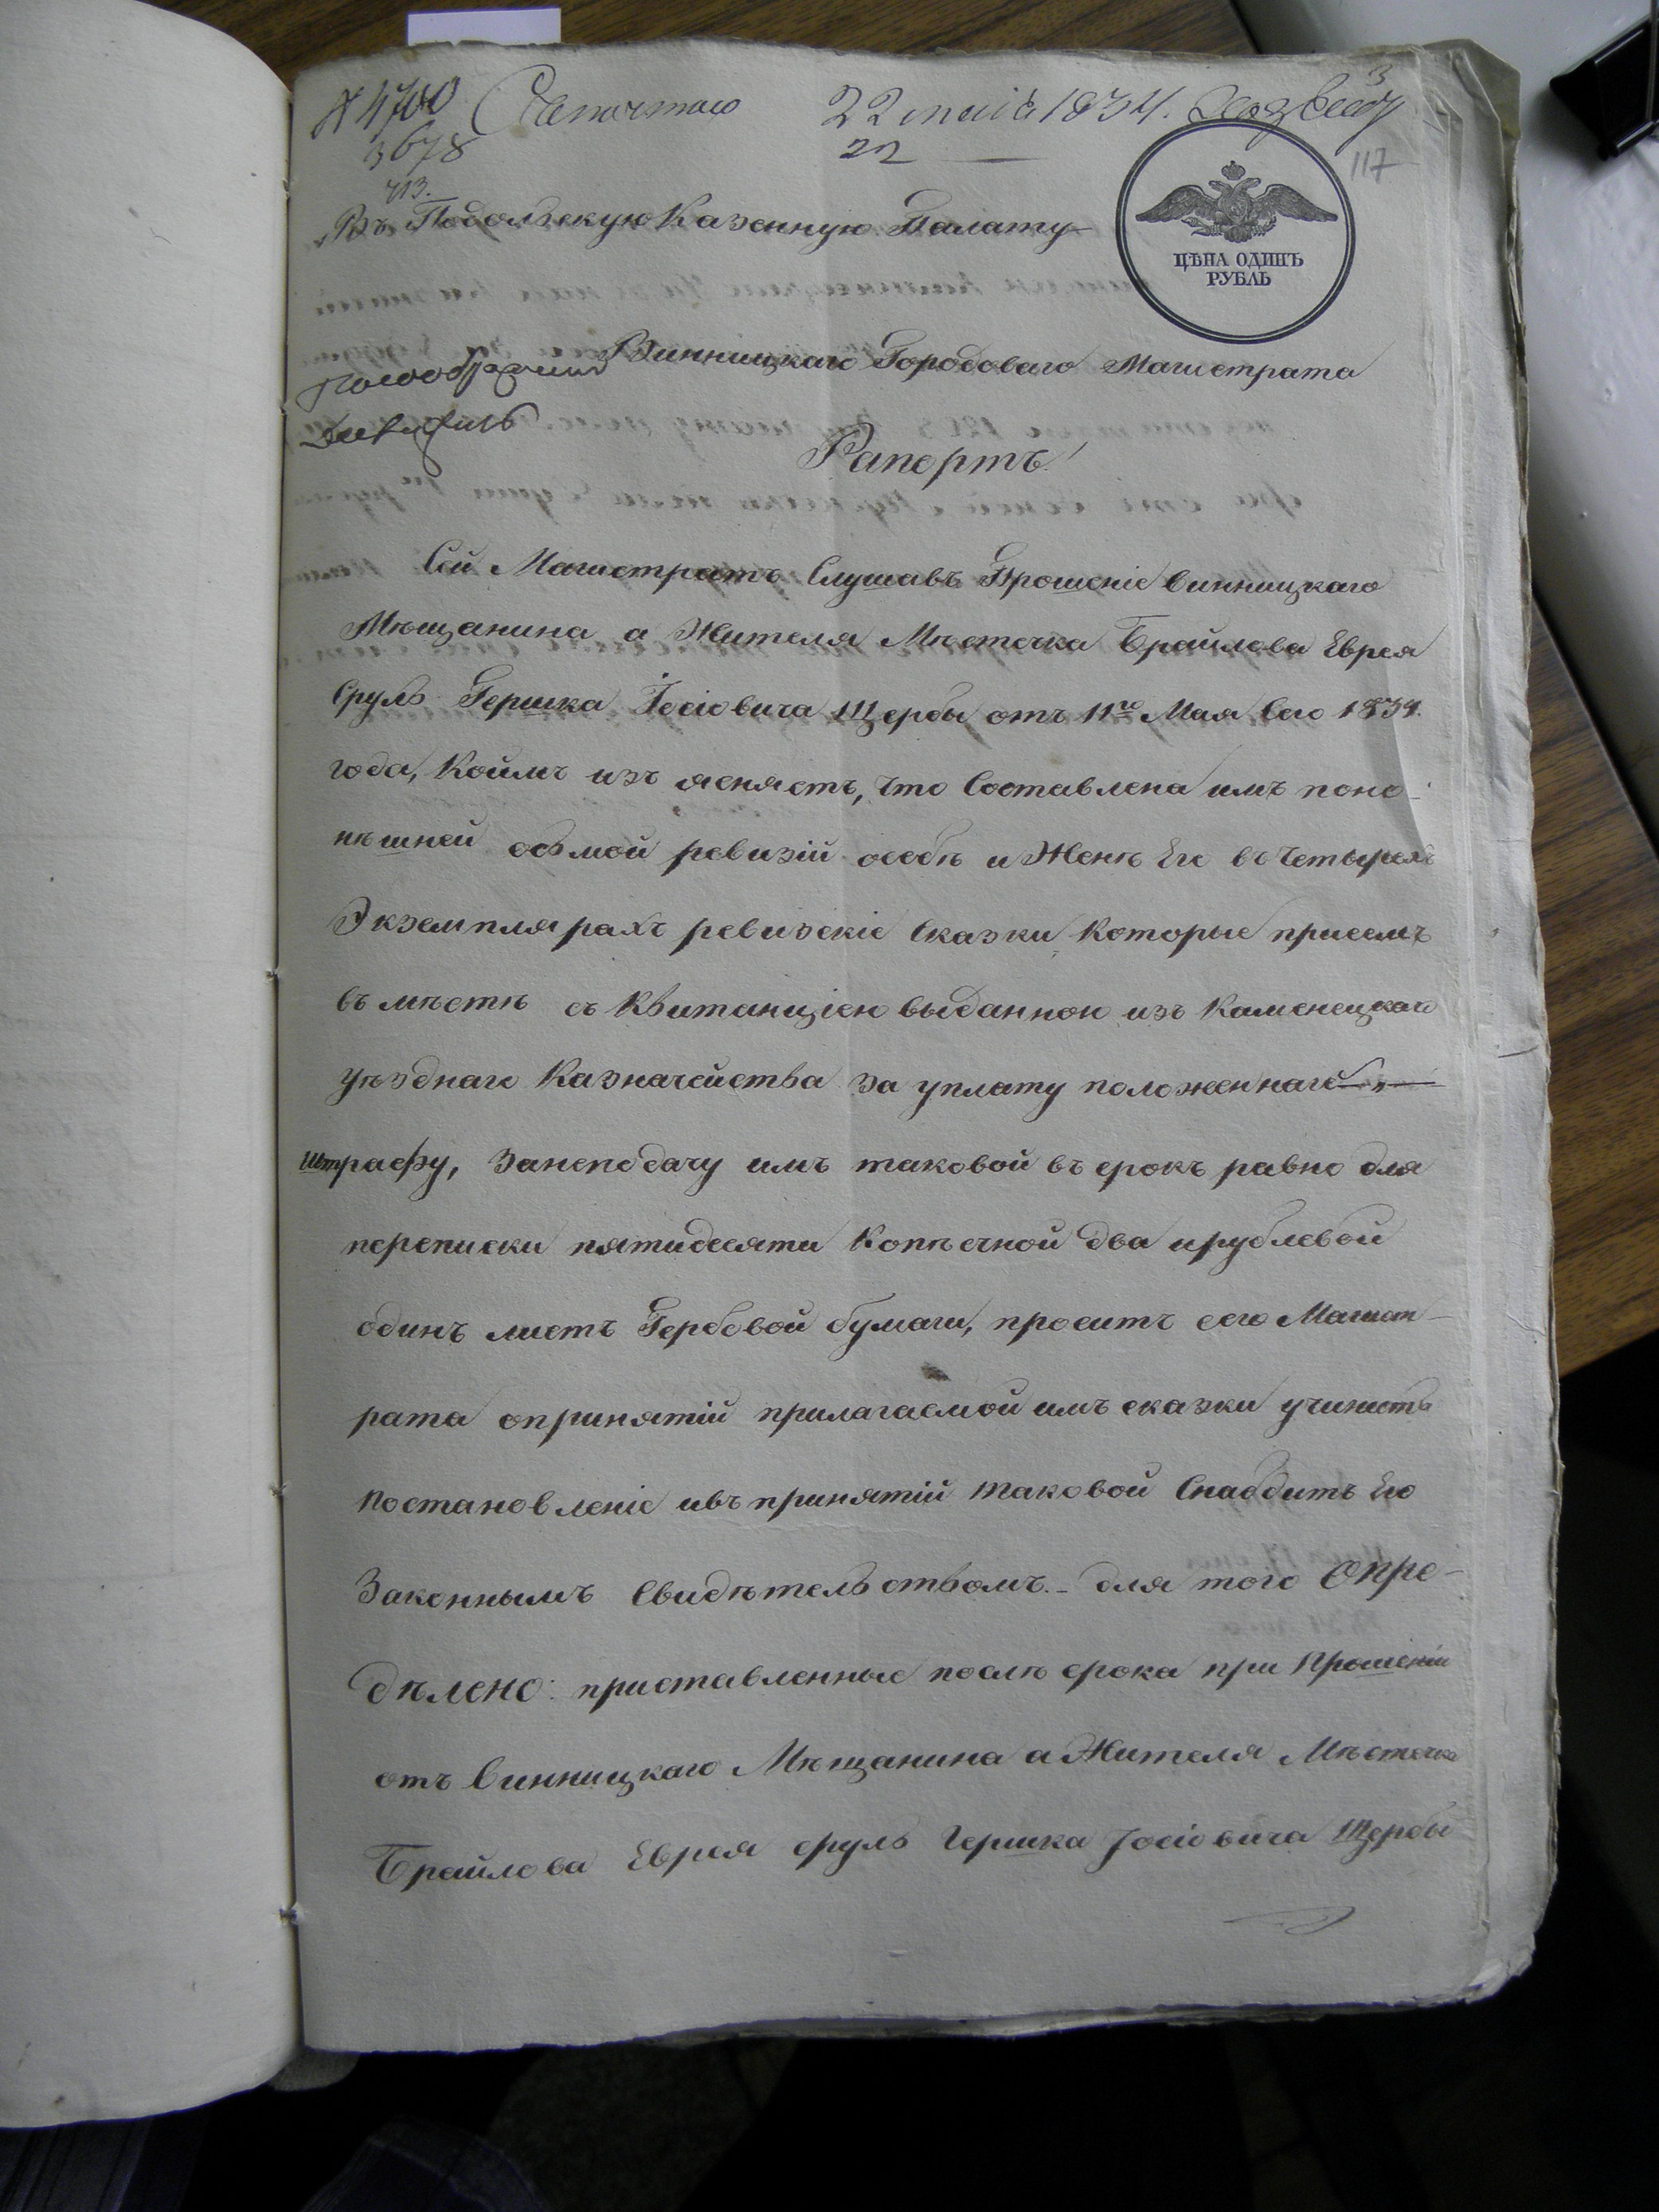 № 4700 22 маія 1834.
3
3678 22
117
413.
Въ Подольскую Казенную Палату
ЦѢНА ОДИНЪ
РУБЛЬ
Винницкаго Городоваго Магистрата
Рапортъ!
Сей Магистратъ Слушавъ Прошеніе винницкаго
Мѣщанина а Жителя Мѣстечка Браилова Еврея
Сруль Гершка Іосіовича Щербы отъ 11го Мая сего 1834.
года, Коимъ изъ ясняетъ, что Составлена имъ поно-
нѣшней осьмой ревизій осебѣ и Женѣ Его въ Четырехъ
Экземплярахъ ревизскіе Сказки Которые присемъ
въ мѣстѣ съ Квитанціею выданною изъ Каменецкаго
уѣзднаго Казначейства за уплату положеннаго
штрафу, Занеподачу имъ таковой въ срокъ равно для
переписки пятидесяти Копѣечной два ирублевой
одинъ листъ Гербовой бумаги, проситъ сего Магист-
рата опринятій прилагаемой имъ сказки учинить
постановленіе ивъ принятій таковой Снабдить Его
Законнымъ Свидѣтельствомъ.- для того Опре-
дѣлено: приставленные послѣ срока при Прошеніи
отъ винницкаго Мѣщанина а Жителя Мѣстечка
Браилова Еврея сруль Гершка Іосіовича Щербы